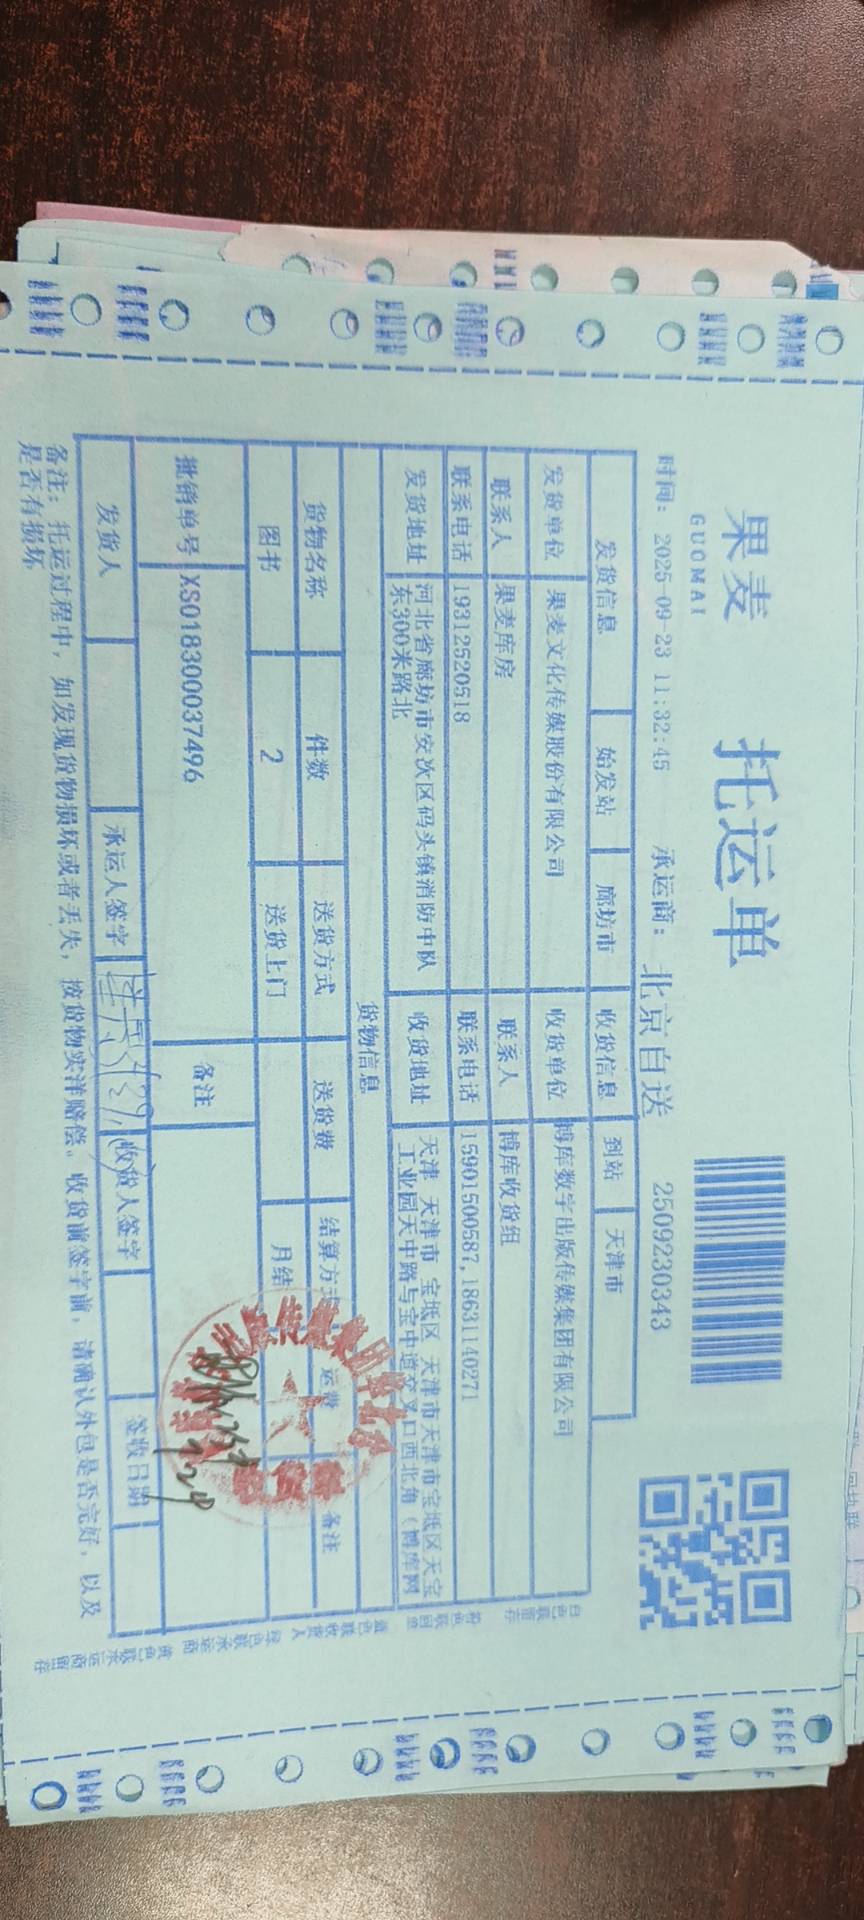 果麦
GUOMAI
托运单
时间: 2025-09-23 11:32:45 承运商: 北京自送 2509230343
发货信息 始发站 廊坊市 收货信息 到站 天津市
发货单位 果麦文化传媒股份有限公司 收货单位 博库数字出版传媒集团有限公司
联系人 果麦库房 联系人 博库收货组
联系电话 19312520518 联系电话 15901500587,18631140271
发货地址 河北省廊坊市安次区码头镇消防中队东300米路北 收货地址 天津 天津市 宝坻区 天津市天津市宝坻区天宝工业园天中路与宝中道交叉口西北角（博库网
货物信息
货物名称 件数 送货方式 送货费 结算方式 运费 备注
图书 2 送货上门 月结
批销单号 XS018300037496 备注
发货人 承运人签字 收货人签字 签收日期
备注: 托运过程中, 如发现货物损坏或者丢失, 按货物实洋赔偿。收货前签字前, 请确认外包是否完好, 以及
是否有损坏
白色联留存 粉色联回单 蓝色联收货人 绿色联承运商 黄色联承运商留存